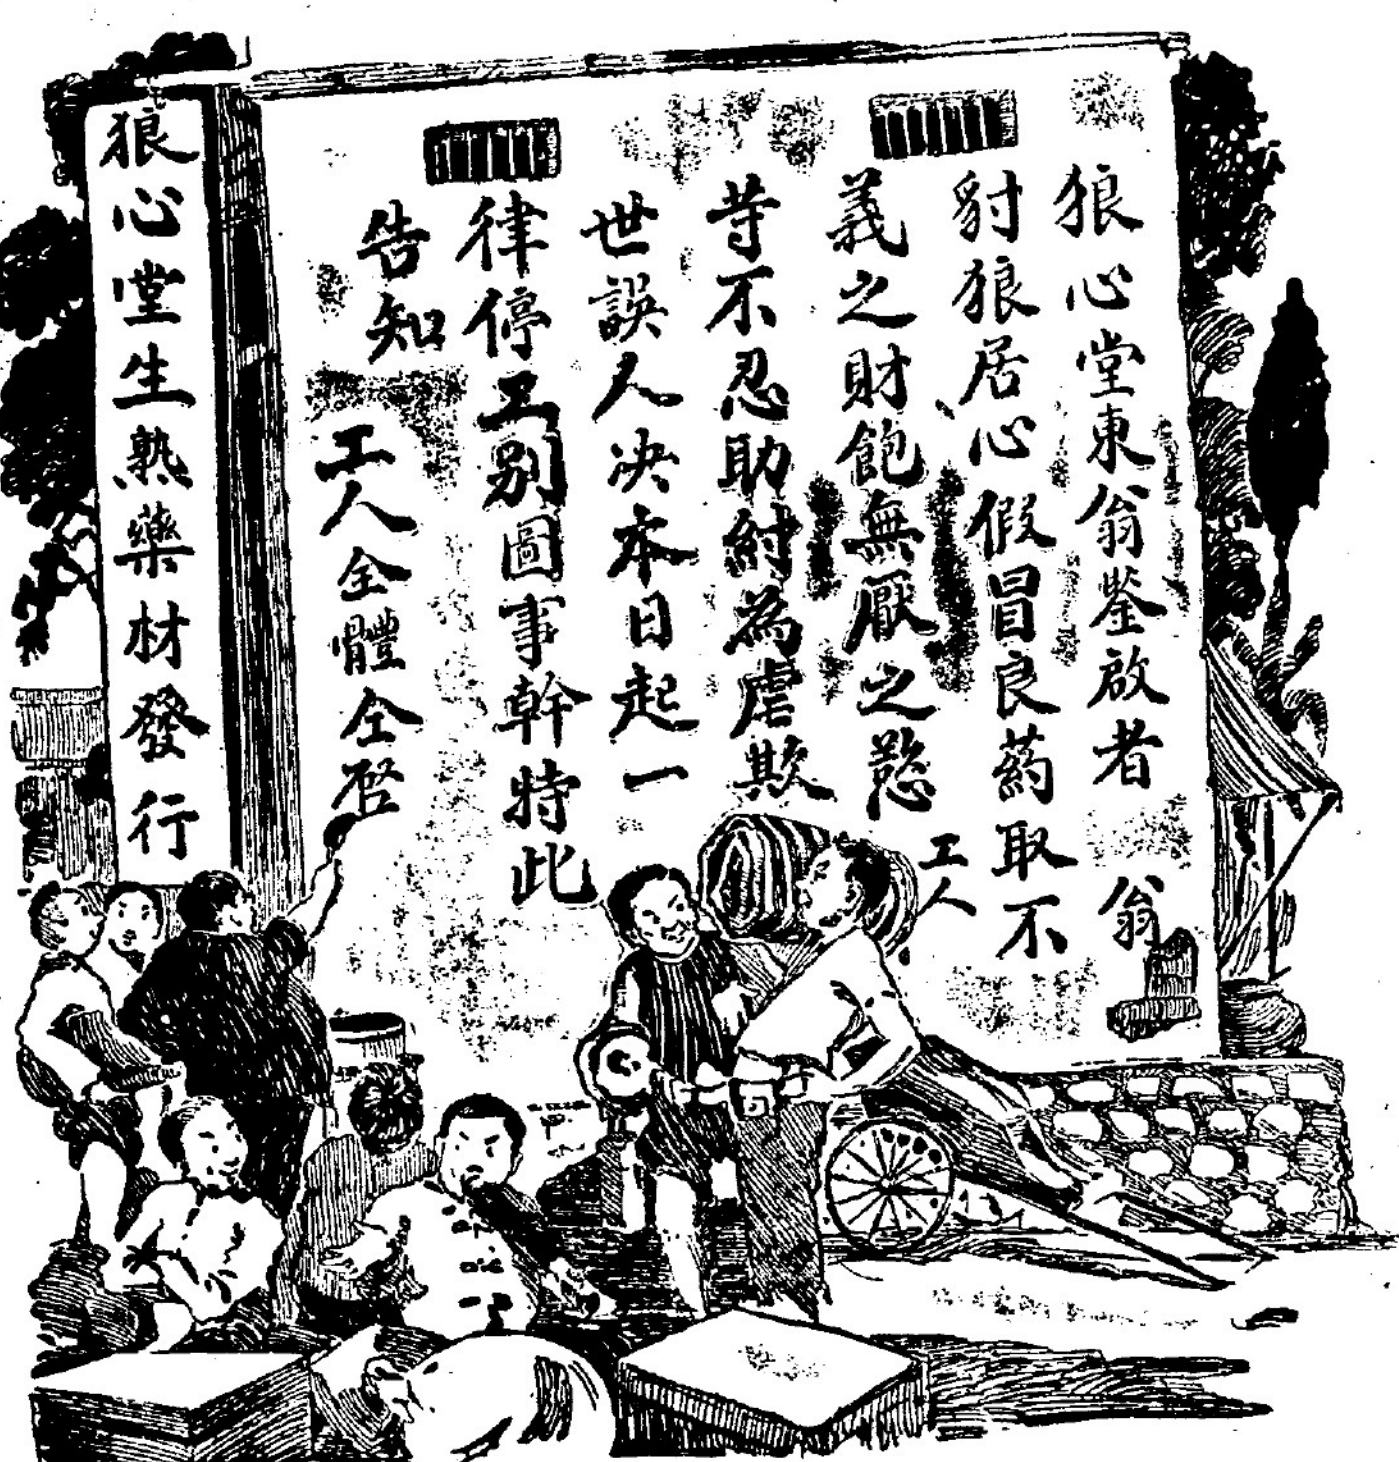 狼心堂東翁鉴啟者 翁
豺狼居心假冒良葯取不
義之財飽無厭之慾 工人
䓁不忍助紂為虐欺
世誤人决本日起一
律停工别圖事幹特此
告知
工人全體仝啓
狼心堂生熟藥材發行